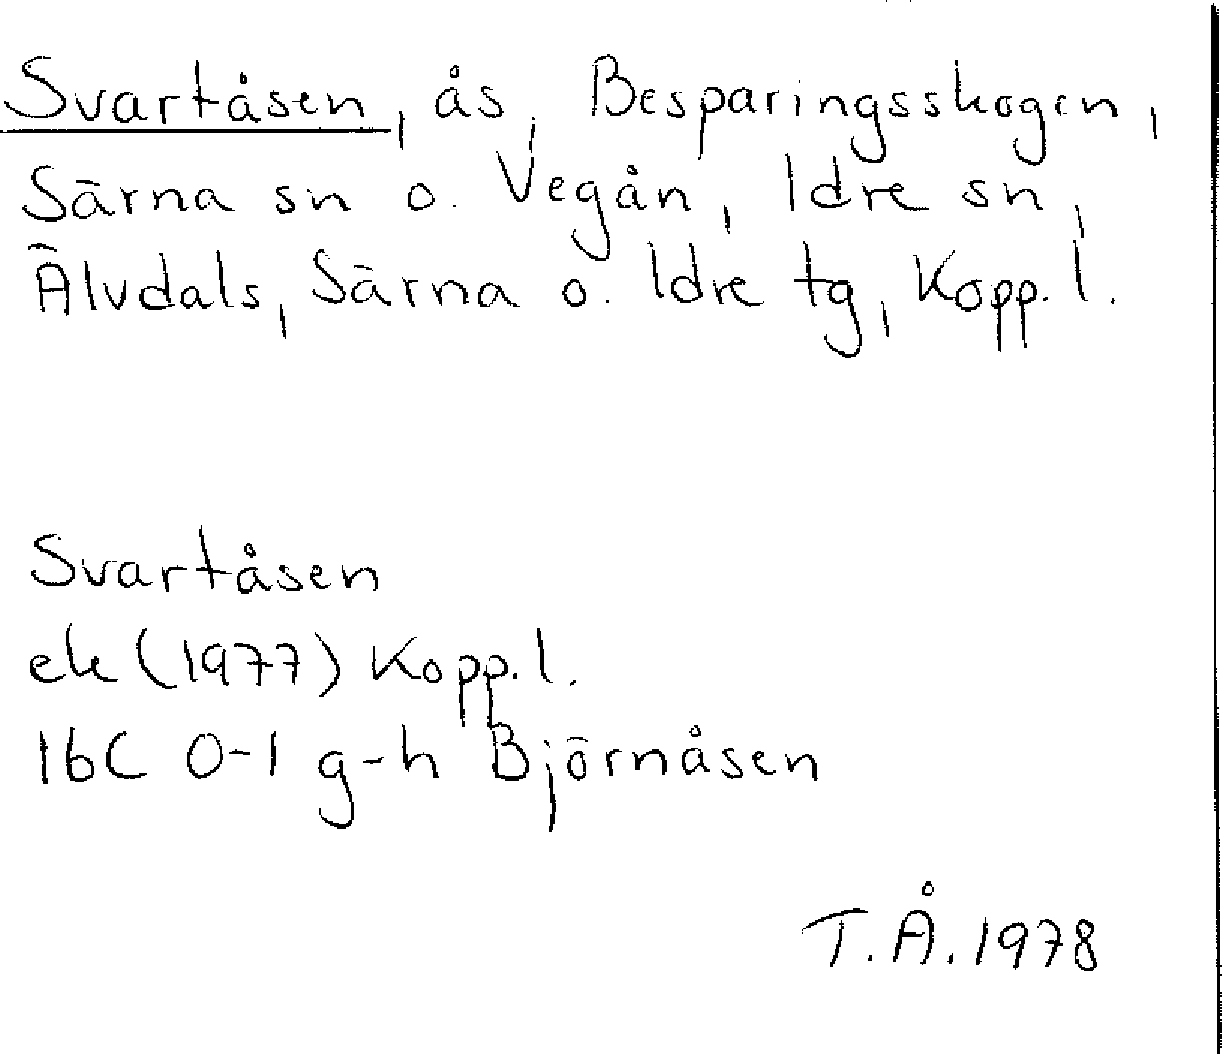 Svartåsen, ås, Besparingsskogen,
Särna sn o. Vegån, Idre sn,
Älvdals, Särna o. Idre tg, Kopp. l.
Svartåsen
ek (1977) Kopp. l.
16C 0-1 g-h Björnåsen
T.Å. 1978